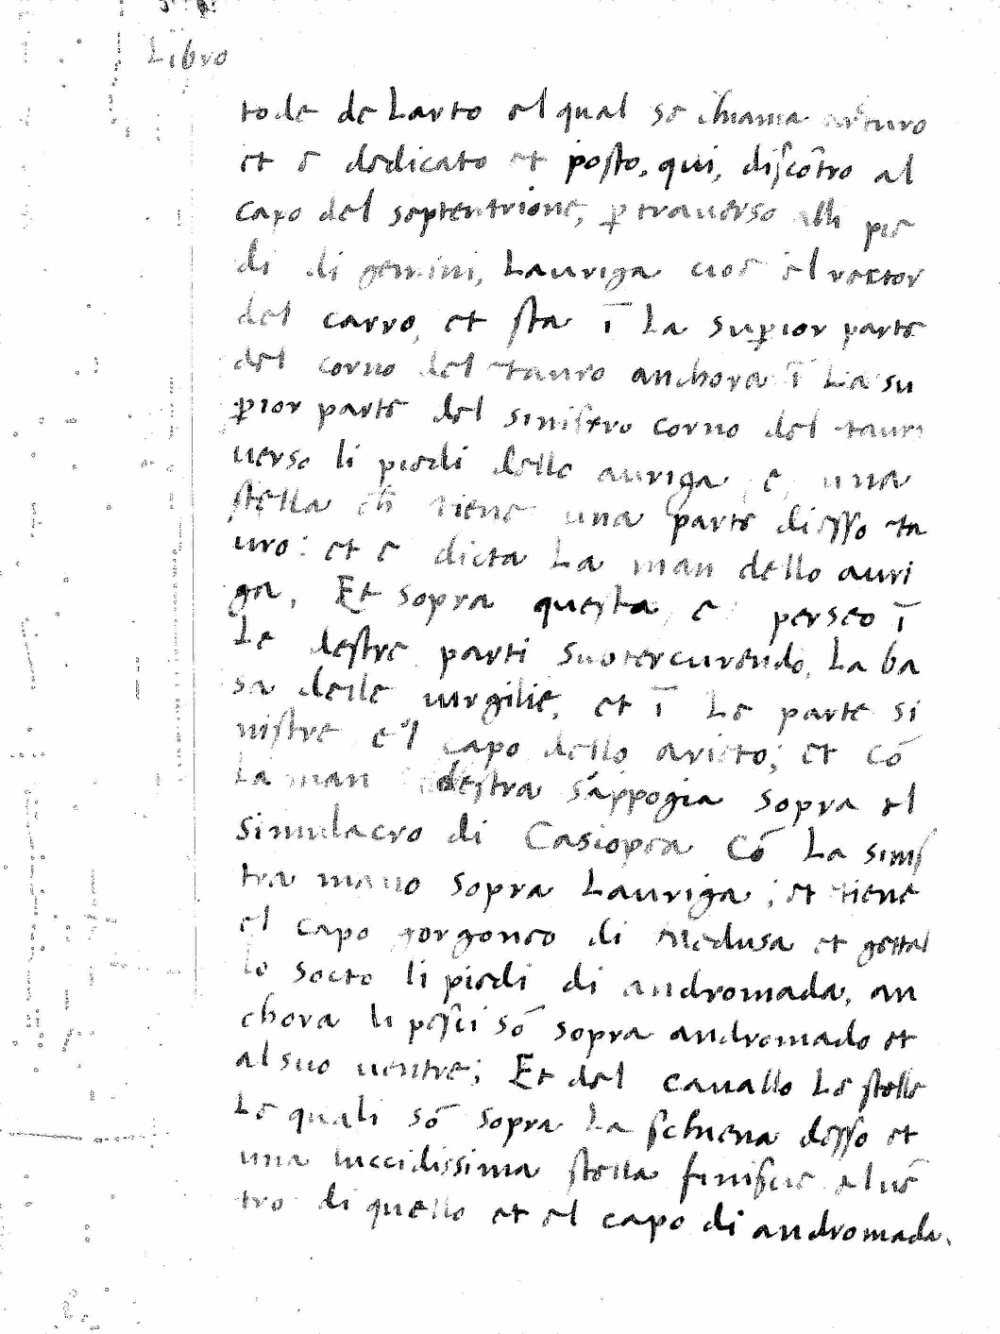 Libro
tode de Larto el qual se chiama arturo
et e dedicato et posto, qui, discōtro al
capo del septentrione, ꝑ trauerso alli pie
di di gemini, Lauriga cioe el rector
del carro, et sta ī La suꝑior parte
del corno del tauro anchora ī La su
ꝑior parte del sinistro corno del tauri
uerso li piedi dello auriga, e, una
stella ch̄ tiene una parte diesso ta
uro: et e dicta La man dello auri
ga, Et sopra questa e perseo ī
Le destre parti suotercurendo, La ba
sa delle uirgilie, et ī Le parte si
nistre e'l capo dello arieto; et cō
La man destra s'appogia sopra el
simulacro di Casiopea cō La sinis
tra mano sopra Lauriga; et tiene
el capo gorgoneo di Medusa et gettal
lo socto li piedi di andromada, an
chora li pesci sō sopra andromado et
al suo uentre; Et del cauallo Le stelle
Le quali sō sopra La schiena desso et
una luccidissima stella finiscie el uē
tro di quello et el capo di andromada.